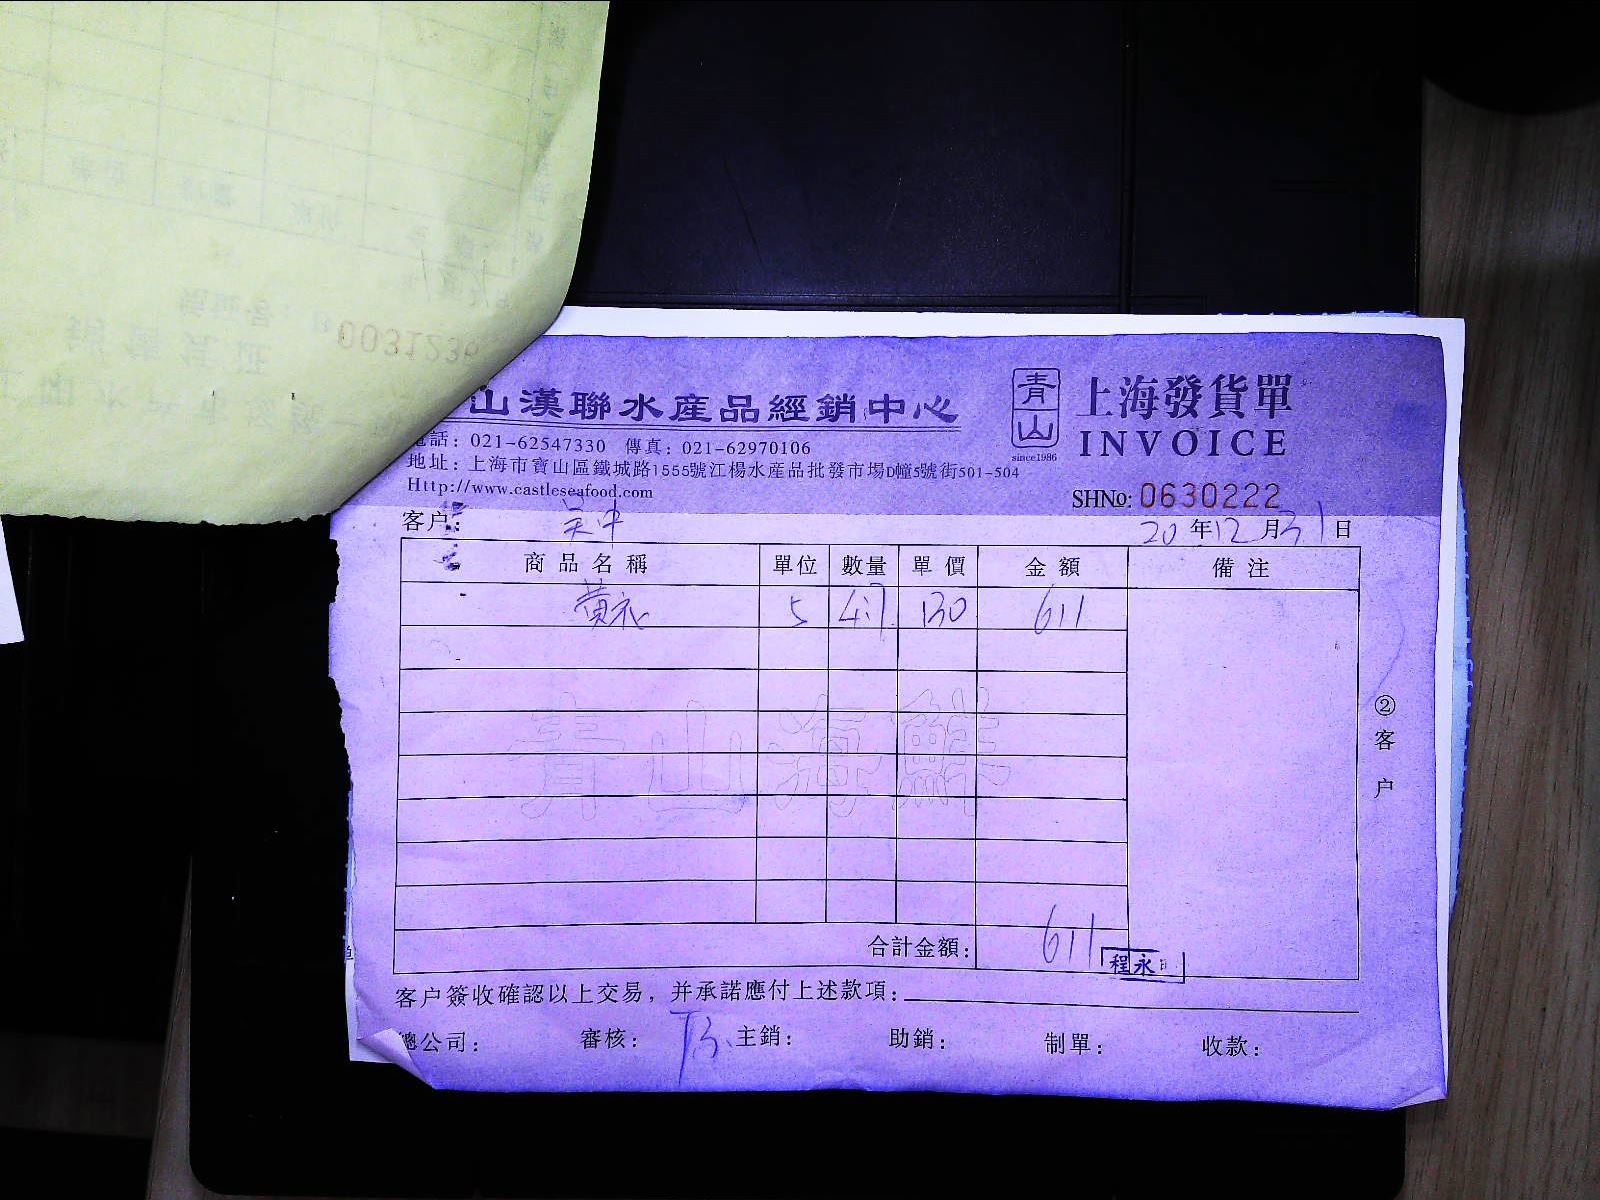 0031236
山漢聯水產品經銷中心
青山
since1986
上海發貨單
INVOICE
電話：021-62547330 傳真：021-62970106
地址：上海市寶山區鐵城路1555號江楊水產品批發市場D幢5號街501-504
Http://www.castleseafood.com
SHNo: 0630222
客户：吴中
20 年 12 月 31 日
商品名稱 單位 數量 單價 金額 備注
黄 5 4.7 130 611
青山海鮮
②客户
合計金額： 611
程永
客户簽收確認以上交易，并承諾應付上述款項：
總公司： 審核： 主銷： 助銷： 制單： 收款：